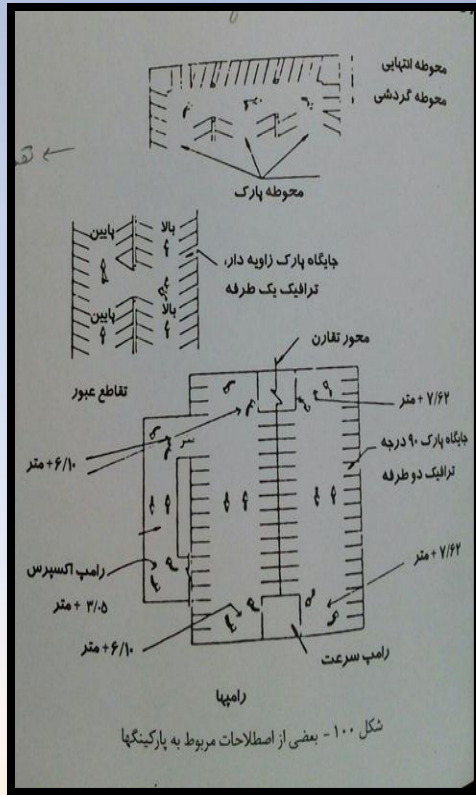 محوطه انتهایی
محوطه گردشی
محوطه پارک
پایین
بالا
جایگاه پارک زاویه دار،
ترافیک یک طرفه
پایین
بالا
تقاطع عبور
محور تقارن
+۷/۶۲ متر
+۶/۱۰ متر
جایگاه پارک ۹۰ درجه
ترافیک دو طرفه
رامپ اکسپرس
+۳/۰۵ متر
+۷/۶۲ متر
+۶/۱۰ متر
رامپ سرعت
رامپها
شکل ۱۰۰ - بعضی از اصطلاحات مربوط به پارکینگها